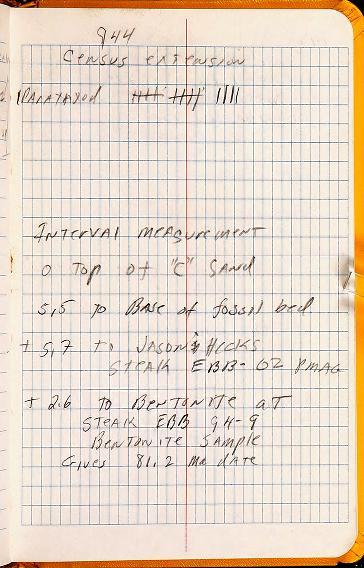 944
Census extension
Paratayod
Interval measurement
0 Top of "C" Sand
5,5 to Base of fossil bed
+ 5,7 to Jason's Hicks
Steak EBB-02 PMAG
+ 2.6 to Bentonite at
Steak EBB 94-9
Bentonite Sample
Gives 81.2 ma date